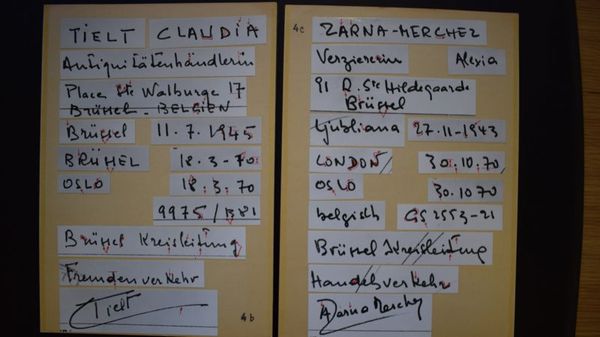 TIELT CLAUDIA
Antiquitätenhändlerin
Place Ste Walburge 17
Brüssel - BELGIEN
Brüssel 11.7.1945
BRÜHEL 18.3-70
OSLO 18.3.70
9975/1381
Brüssel Kreisleitung
Fremdenverkehr
Tielt
4b
4c
ZARNA-MERCHEZ
Verziererin Alexia
91 R. Ste Hildegaarde
Brüssel
Ljubliana 27-11-1943
LONDON 30.10.70
OSLO 30.1070
belgisch GS2553-21
Brüssel Kreisleitung
Handelsverkehr